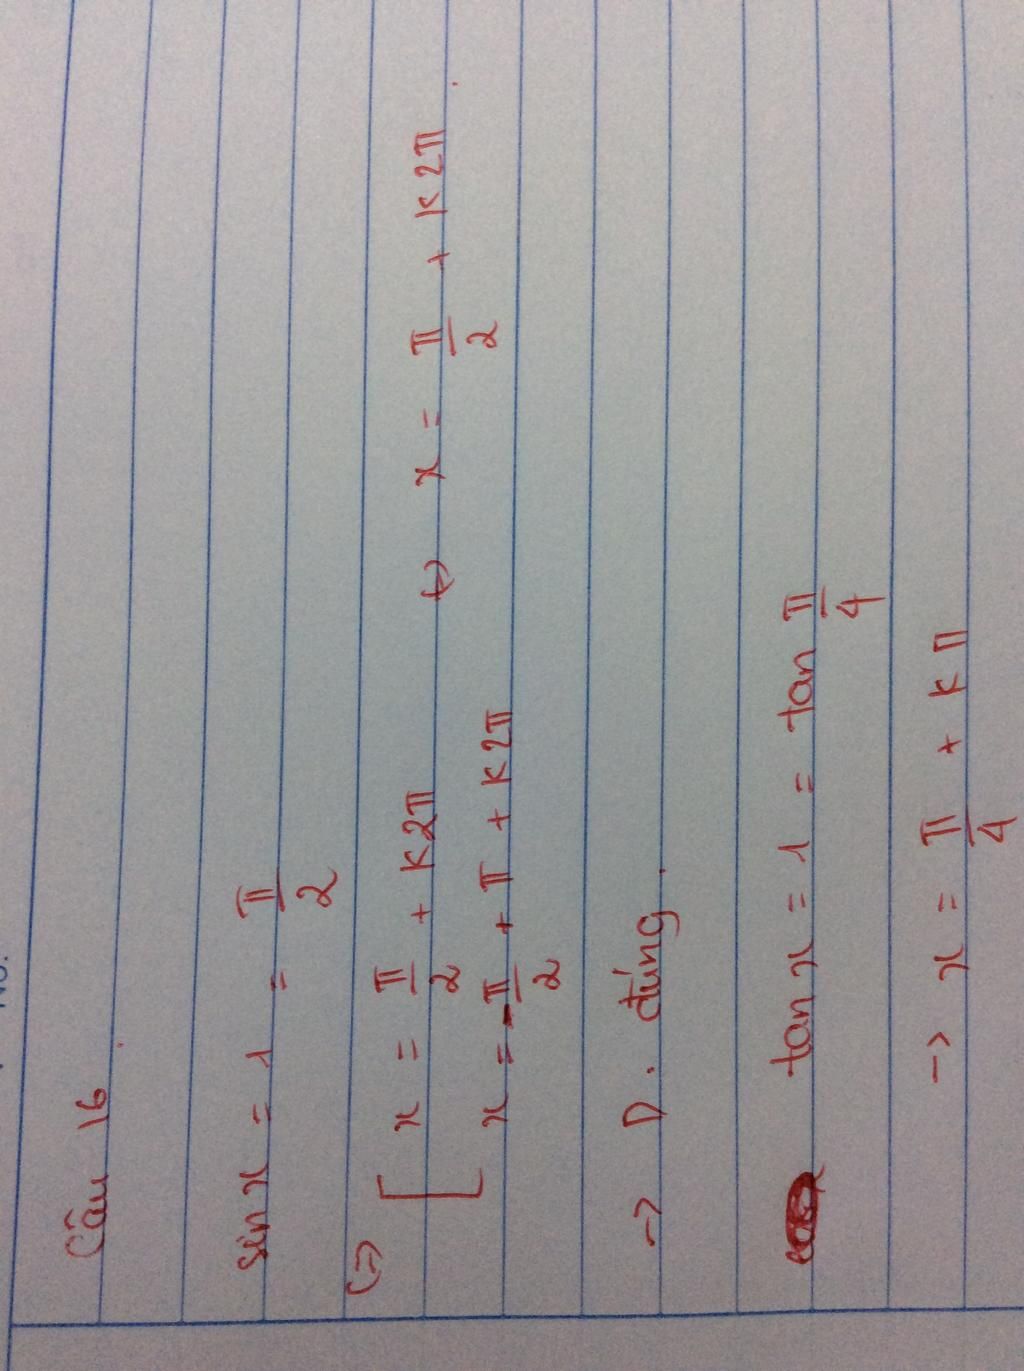 Câu 16
sin x = 1 = π/2
(=) [ x = π/2 + k2π
x = -π/2 + π + k2π (=) x = π/2 + k2π
-> D. đúng.
tan x = 1 = tan π/4
-> x = π/4 + kπ